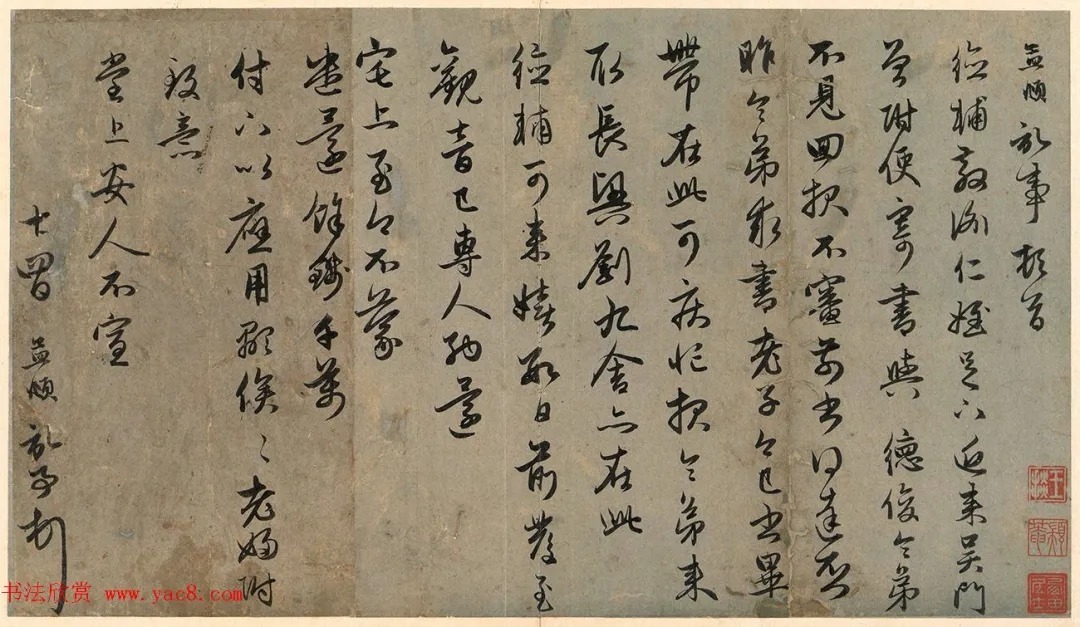 孟頫 記事頓首
德輔教諭仁姪足下近來吳門
曾附便寄書與 德俊令弟
不見回報不審前書得達否
昨令弟求書老子今已書畢
帶在此可疾忙報令弟來
取長興劉九舍亦在此
德輔可來嬉數日前發至
觀音已專人納還
宅上至今不蒙
遣還餘鈔千萬
付下以應用顒俟々老婦附
致意
堂上安人不宣
十四日 孟頫
王掞
书法欣赏 www.yac8.com